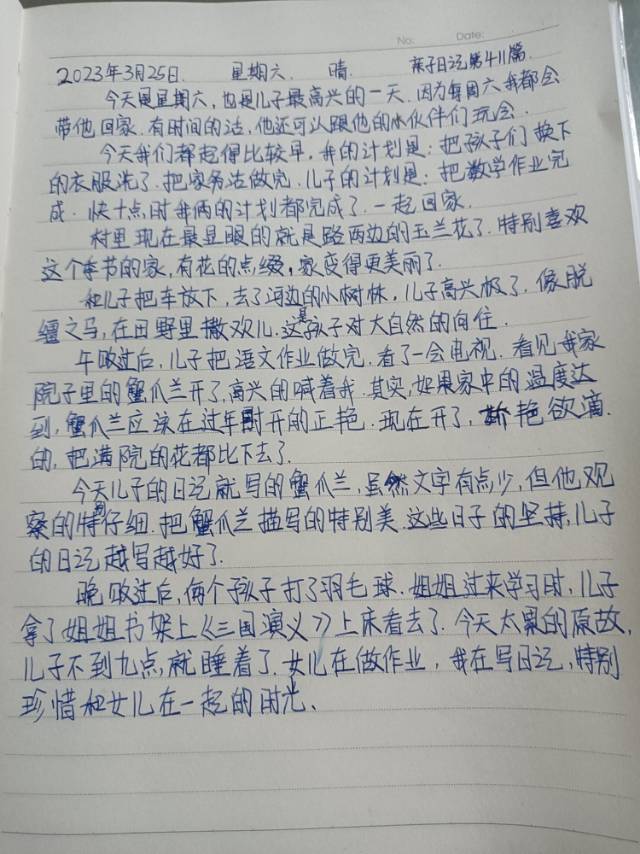 No:
Date:
2023年3月25日. 星期六. 晴. 亲子日记第411篇.
今天是星期六,也是儿子最高兴的一天.因为每周六我都会
带他回家.有时间的话,他还可以跟他的小伙伴们玩会.
今天我们都起得比较早,我的计划是:把孩子们换下
的衣服洗了.把家务活做完.儿子的计划是:把数学作业完
成.快十点时我俩的计划都完成了.一起回家.
村里现在最显眼的就是路两边的玉兰花了.特别喜欢
这个季节的家,有花的点缀,家变得更美丽了.
和儿子把车放下,去了河边的小树林,儿子高兴极了.像脱
缰之马,在田野里撒欢儿.这是孩子对大自然的向往.
午饭过后,儿子把语文作业做完.看了一会电视.看见我家
院子里的蟹爪兰开了,高兴的喊着我.其实,如果家中的温度达
到,蟹爪兰应该在过年时开的正艳.现在开了,娇艳欲滴.
的,把满院的花都比下去了.
今天儿子的日记就写的蟹爪兰,虽然文字有点少,但他观
察的特别仔细.把蟹爪兰描写的特别美.这些日子的坚持,儿子
的日记越写越好了.
晚饭过后,俩个孩子打了羽毛球.姐姐过来学习时,儿子
拿了姐姐书架上《三国演义》上床看去了.今天太累的原故,
儿子不到九点,就睡着了.女儿在做作业,我在写日记,特别
珍惜和女儿在一起的时光.